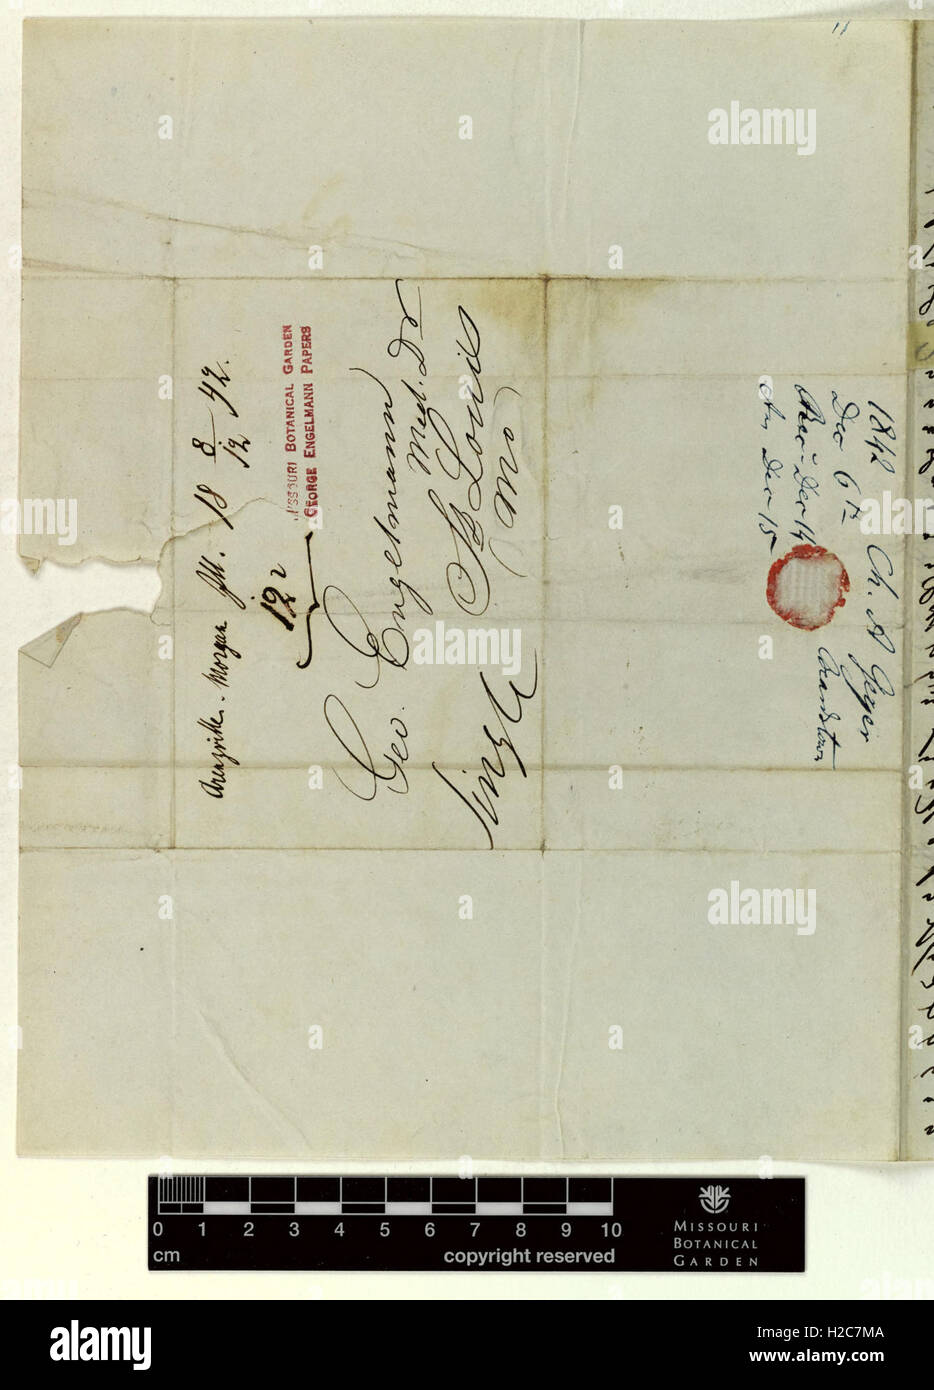 Arenzville. Morgan Ill. 18 8/12 42.
12 2
MISSOURI BOTANICAL GARDEN
GEORGE ENGELMANN PAPERS
Geo. Engelmann
Med. Dr
St Louis
Single
(Mo)
1842 Ch. A Geyer
Dec 6th Beardstown
Recd Dec 14
An Dec 15
11
a
alamy
0 1 2 3 4 5 6 7 8 9 10
cm
copyright reserved
MISSOURI
BOTANICAL
GARDEN
alamy
Image ID: H2C7MA
www.alamy.com